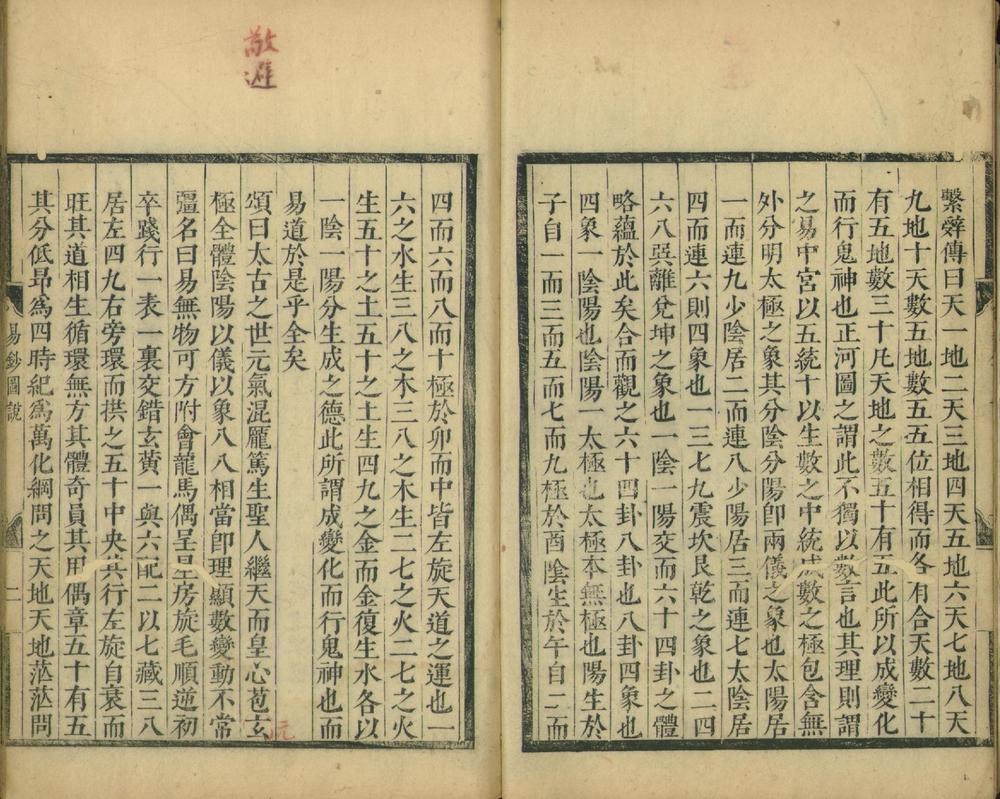 繫辭傳曰天一地二天三地四天五地六天七地八天
九地十天數五地數五五位相得而各有合天數二十
有五地數三十凡天地之數五十有五此所以成變化
而行鬼神也正河圖之謂此不獨以數言也其理則謂
之易中宮以五統十以生數之中統成數之極包含無
外分明太極之象其分陰分陽卽兩儀之象也太陽居
一而連九少陰居二而連八少陽居三而連七太陰居
四而連六則四象也一三七九震坎艮乾之象也二四
六八巽離兌坤之象也一陰一陽交而六十四卦之體
略蘊於此矣合而觀之六十四卦八卦也八卦四象也
四象一陰陽也陰陽一太極也太極本無極也陽生於
子自一而三而五而七而九極於酉陰生於午自二而
四而六而八而十極於卯而中皆左旋天道之運也一
六之水生三八之木三八之木生二七之火二七之火
生五十之土五十之土生四九之金而金復生水各以
一陰一陽分生成之德此所謂成變化而行鬼神也而
易道於是乎全矣
頌曰太古之世元氣混厖篤生聖人繼天而皇心苞玄
極全體陰陽以儀以象八八相當卽理顯數變動不常
彊名曰易無物可方附會龍馬偶呈星房旋毛順逆初
卒踐行一表一裏交錯玄黃一與六配二以七藏三八
居左四九右旁環而拱之五十中央其行左旋自衰而
旺其道相生循環無方其體奇員其用偶章五十有五
其分低昂爲四時紀爲萬化綱問之天地天地茫茫問
易鈔圖說
二
敬避
元